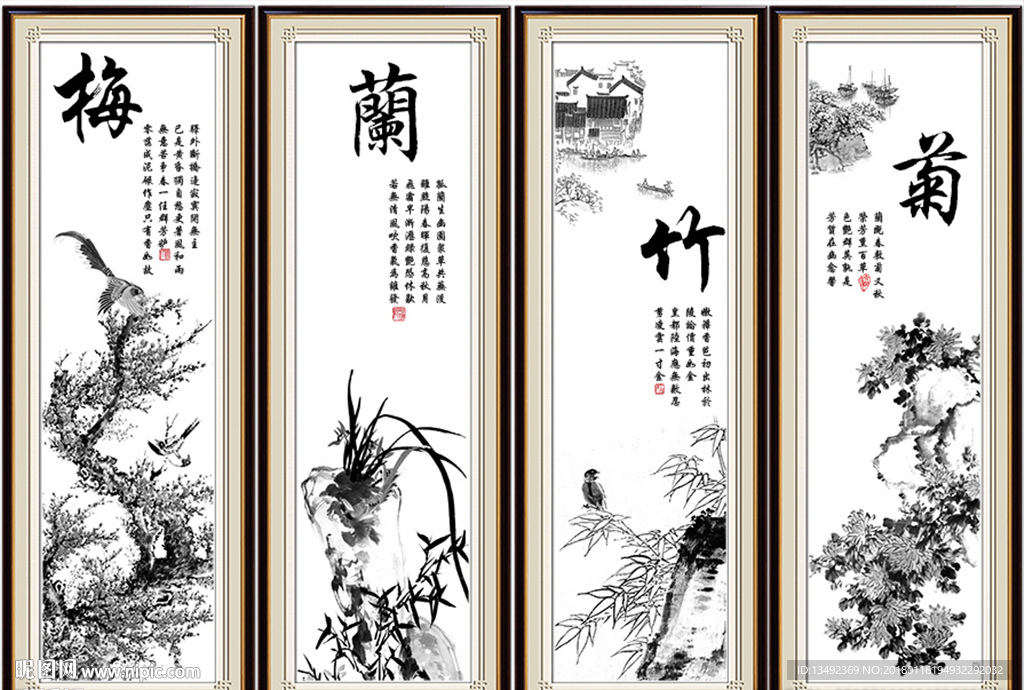 梅
驛外斷橋邊寂寞開無主
已是黃昏獨自愁更著風和雨
無意苦爭春一任群芳妒
零落成泥碾作塵只有香如故
蘭
孤蘭生幽園眾草共蕪沒
雖照陽春暉復悲高秋月
飛霜早淅瀝綠艷恐休歇
若無清風吹香氣為誰發
竹
嫩籜香苞初出林於
陵論價重如金
皇都陸海應無數忍
剪凌雲一寸金
菊
蘭既春敷菊又秋
榮芳熏百草
色艷群英孰是
芳質在幽愈馨
昵图网 www.nipic.com
ID:13492369 NO:20180116194932292032